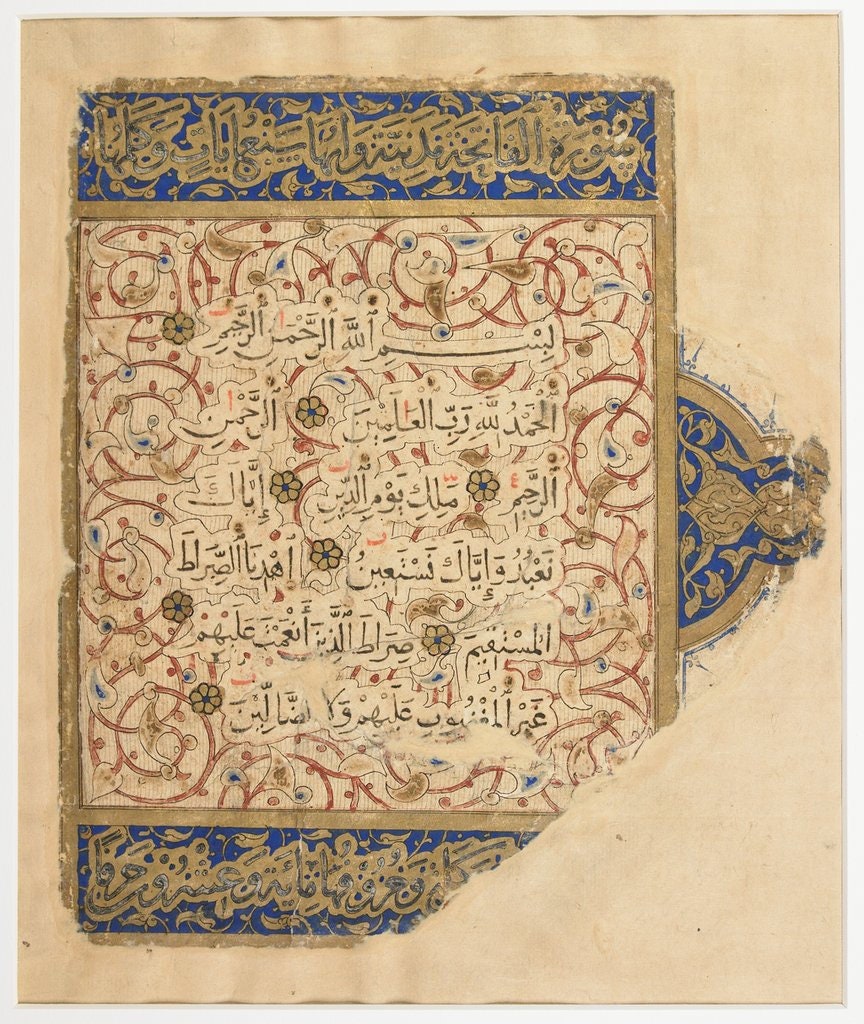 سُورَةُ الفَاتِحَةِ مَدَنِيَّة وَايهَا سَبْعُ ايَاتٍ وَكَلِمُهَا
بِسْمِ ٱللَّهِ ٱلرَّحْمَٰنِ ٱلرَّحِيمِ
ٱلْحَمْدُ لِلَّهِ رَبِّ ٱلْعَالَمِينَ ٱلرَّحْمٰنِ
ٱلرَّحِيمِ مَلِكِ يَوْمِ ٱلدِّينِ إِيَّاكَ
نَعْبُدُ وَإِيَّاكَ نَسْتَعِينُ ٱهْدِنَا ٱلصِّرَاطَ
ٱلْمُسْتَقِيمَ صِرَاطَ ٱلَّذِينَ أَنْعَمْتَ عَلَيْهِمْ
غَيْرِ ٱلْمَغْضُوبِ عَلَيْهِمْ وَلَا ٱلضَّالِّينَ
وَحُرُوفُهَا مِايَة وَعِشْرُونَ حَرْفًا